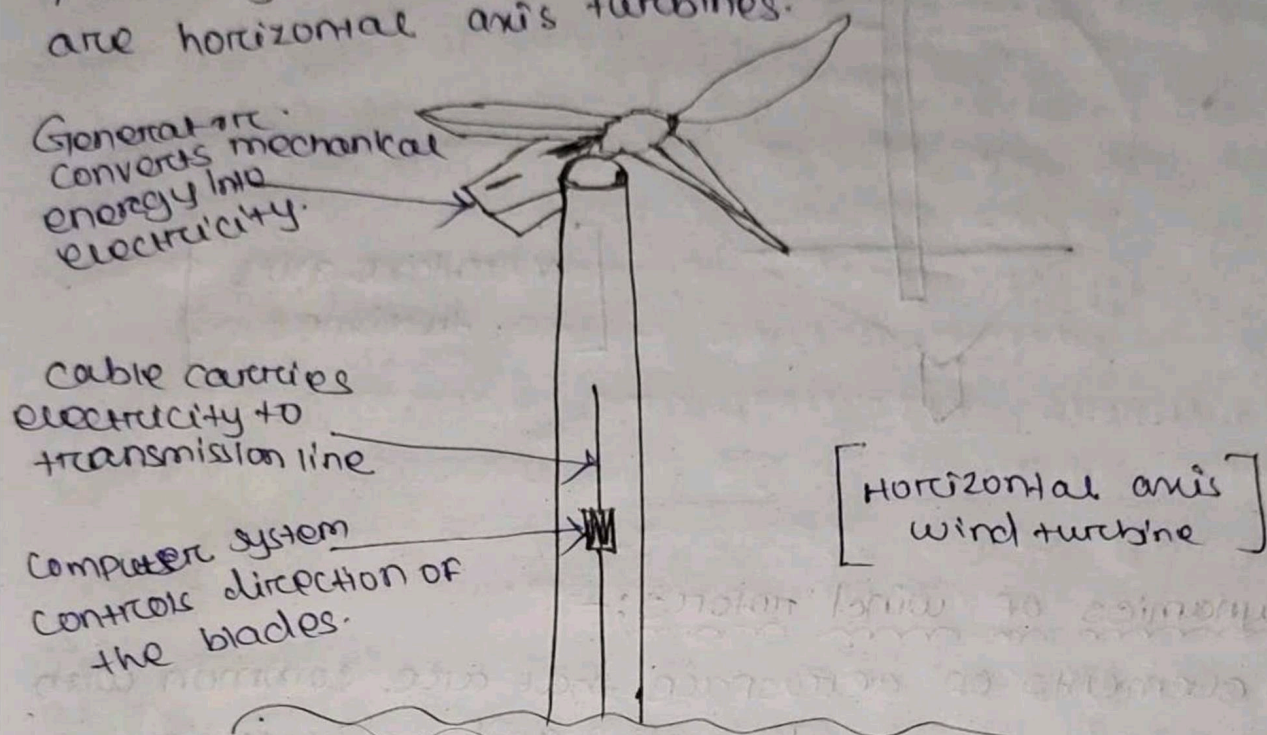 are horizontal axis turbines.
Generator
converts mechanical
energy into
electricity.
cable carries
electricity to
transmission line
computer system
controls direction of
the blades.
[Horizontal axis
wind turbine]